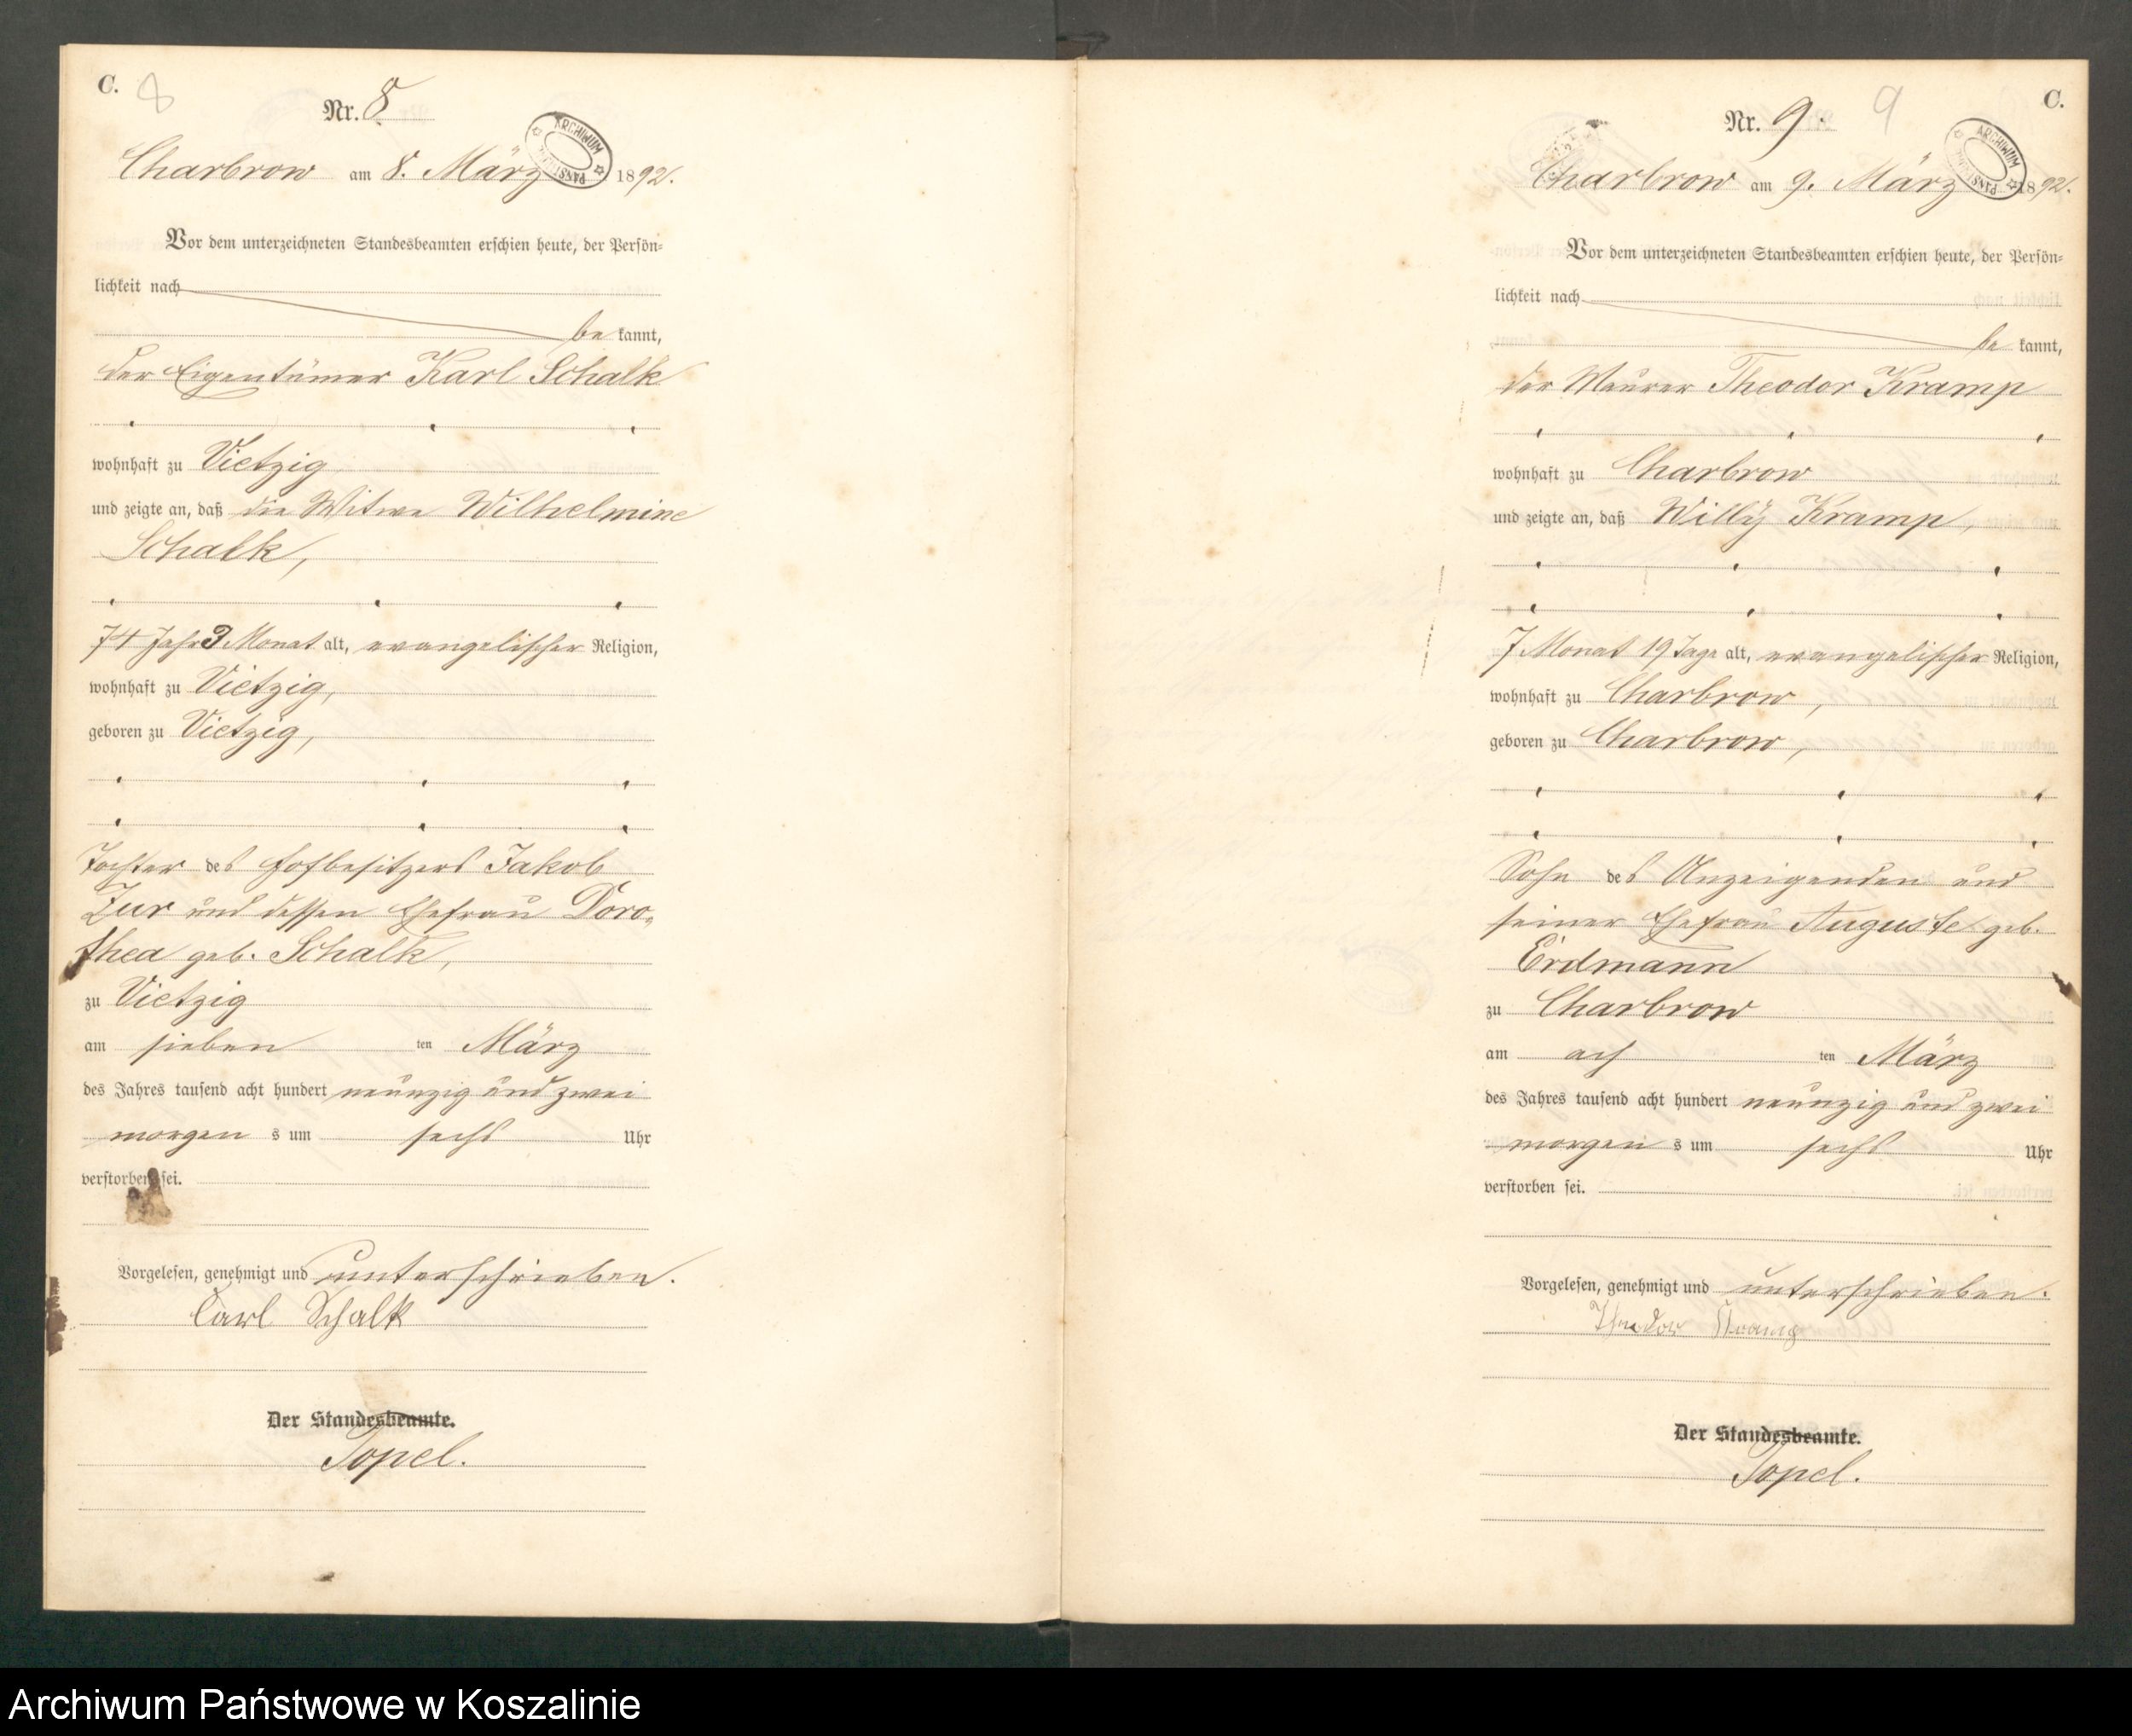 C. 8
Nr. 8
Charbrow am 8. März 1892.
ARCHIWUM
Vor dem unterzeichneten Standesbeamten erschien heute, der Persön=
lichkeit nach
be kannt,
der Eigentümer Karl Schalk
wohnhaft zu Vietzig
und zeigte an, daß die Witwe Wilhelmine
Schalk,
74 Jahr 3 Monat alt, evangelischer Religion,
wohnhaft zu Vietzig,
geboren zu Vietzig,
Tochter des Hofbesitzers Jakob
Zur und dessen Ehefrau Doro-
thea geb. Schalk,
zu Vietzig
am sieben ten März
des Jahres tausend acht hundert neunzig und zwei
morgen s um sechs Uhr
verstorben sei.
Vorgelesen, genehmigt und unterschrieben.
Carl Schalk
Der Standesbeamte.
Topel.
C.
Nr. 9. 9
Charbrow am 9. März 1892.
ARCHIWUM
Vor dem unterzeichneten Standesbeamten erschien heute, der Persön=
lichkeit nach
be kannt,
der Maurer Theodor Kramp
wohnhaft zu Charbrow
und zeigte an, daß Willy Kramp,
7 Monat 19 Tage alt, evangelischer Religion,
wohnhaft zu Charbrow,
geboren zu Charbrow,
Sohn des Anzeigenden und
seiner Ehefrau Auguste geb.
Erdmann
zu Charbrow
am ach ten März
des Jahres tausend acht hundert neunzig und zwei
morgen s um sechs Uhr
verstorben sei.
Vorgelesen, genehmigt und unterschrieben.
Theodor Kramp
Der Standesbeamte.
Topel.
Archiwum Państwowe w Koszalinie